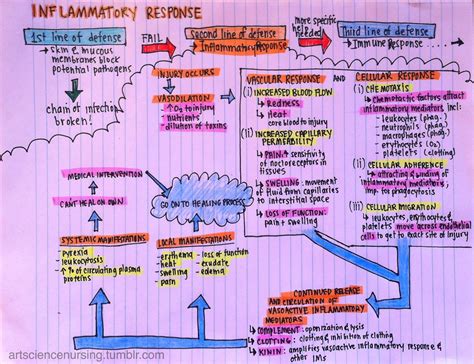 INFLAMMATORY RESPONSE
1st line of defense
→ skin & mucous
membranes block
potential pathogens
chain of infection
broken!
FAIL
Second line of defense
→ Inflammatory Response
more specific
needed
Third line of defense
→ Immune Response
INJURY OCCURS
VASODILATION
- O2 to injury
- nutrients
- dilution of toxins
VASCULAR RESPONSE AND CELLULAR RESPONSE
(i) INCREASED BLOOD FLOW
↳ Redness
↳ Heat
core blood to injury
(ii) INCREASED CAPILLARY
PERMEABILITY
↳ PAIN: sensitivity
of nocioreceptors in
tissues
↳ SWELLING: movement
of fluid from capillaries
to interstitial space
↳ LOSS OF FUNCTION:
pain + swelling
(i) CHEMOTAXIS
↳ chemotactic factors attract
inflammatory mediators incl:
- leukocytes (phag.)
- neutrophils (phag.)
- macrophages (phag)
- erythrocytes (O2)
- platelets (clotting)
(ii) CELLULAR ADHERENCE
↳ attracting & binding of
inflammatory mediators;
imp for phagocytosis
(iii) CELLULAR MIGRATION
↳ leukocytes, erythrocytes &
platelets move across endothelial
cells to get to exact site of injury
MEDICAL INTERVENTION
CAN'T HEAL ON OWN
GO ON TO HEALING PROCESS
SYSTEMIC MANIFESTATIONS
- pyrexia
- leukocytosis
- ↑ % of circulating plasma
proteins
LOCAL MANIFESTATIONS
- erythema
- heat
- swelling
- pain
- loss of function
- exudate
- edema
CONTINUED RELEASE
AND CIRCULATION OF
VASOACTIVE INFLAMMATORY
MEDIATORS
↳ COMPLEMENT: opsonization & lysis
↳ CLOTTING: clotting & inhibition of clotting
↳ KININ: amplifies vasoactive inflammatory response &
other IMs
artsciencenursing.tumblr.com